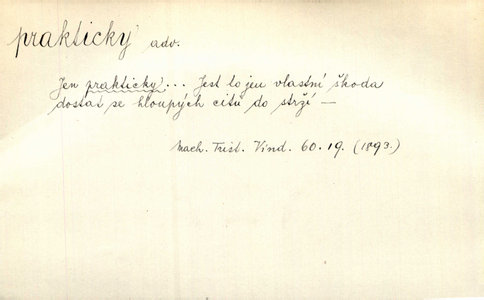 prakticky adv.
Jen prakticky... Jest to jen vlastní škoda
dostat se hloupých citů do strží —
Mach. Trist. Vind. 60.19. (1893.)